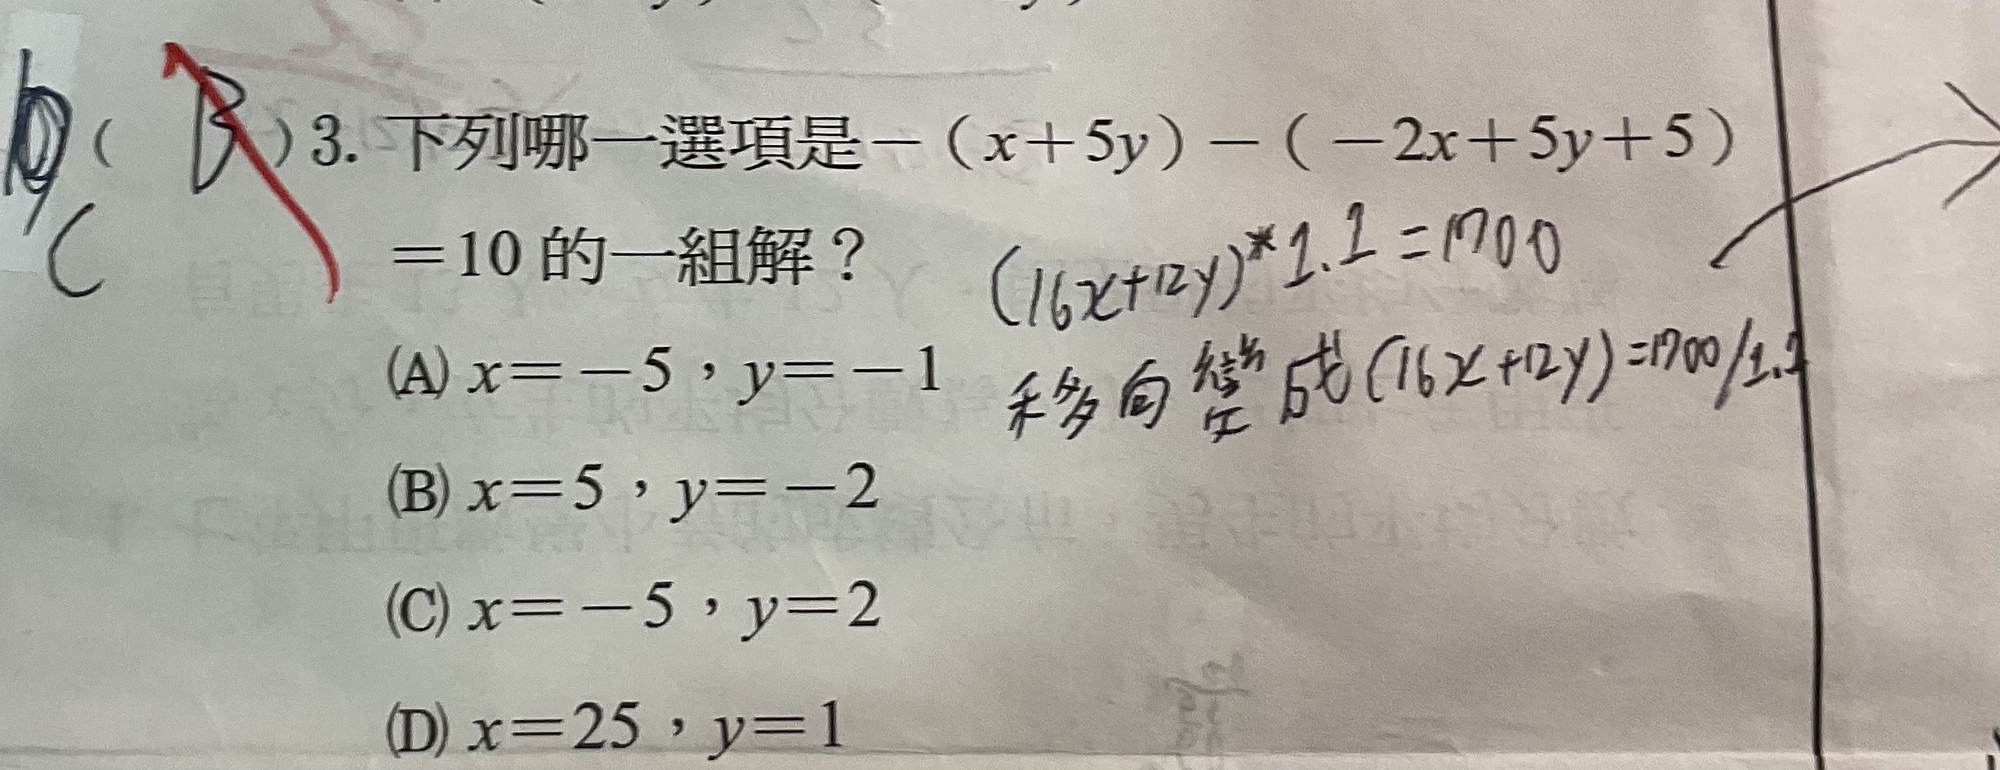 ( B ) 3. 下列哪一選項是－（x＋5y）－（－2x＋5y＋5）
C
＝10 的一組解？
(16x+12y)*1.1=1700
(A) x＝－5，y＝－1
移向變成(16x+12y)=1700/1.1
(B) x＝5，y＝－2
(C) x＝－5，y＝2
(D) x＝25，y＝1